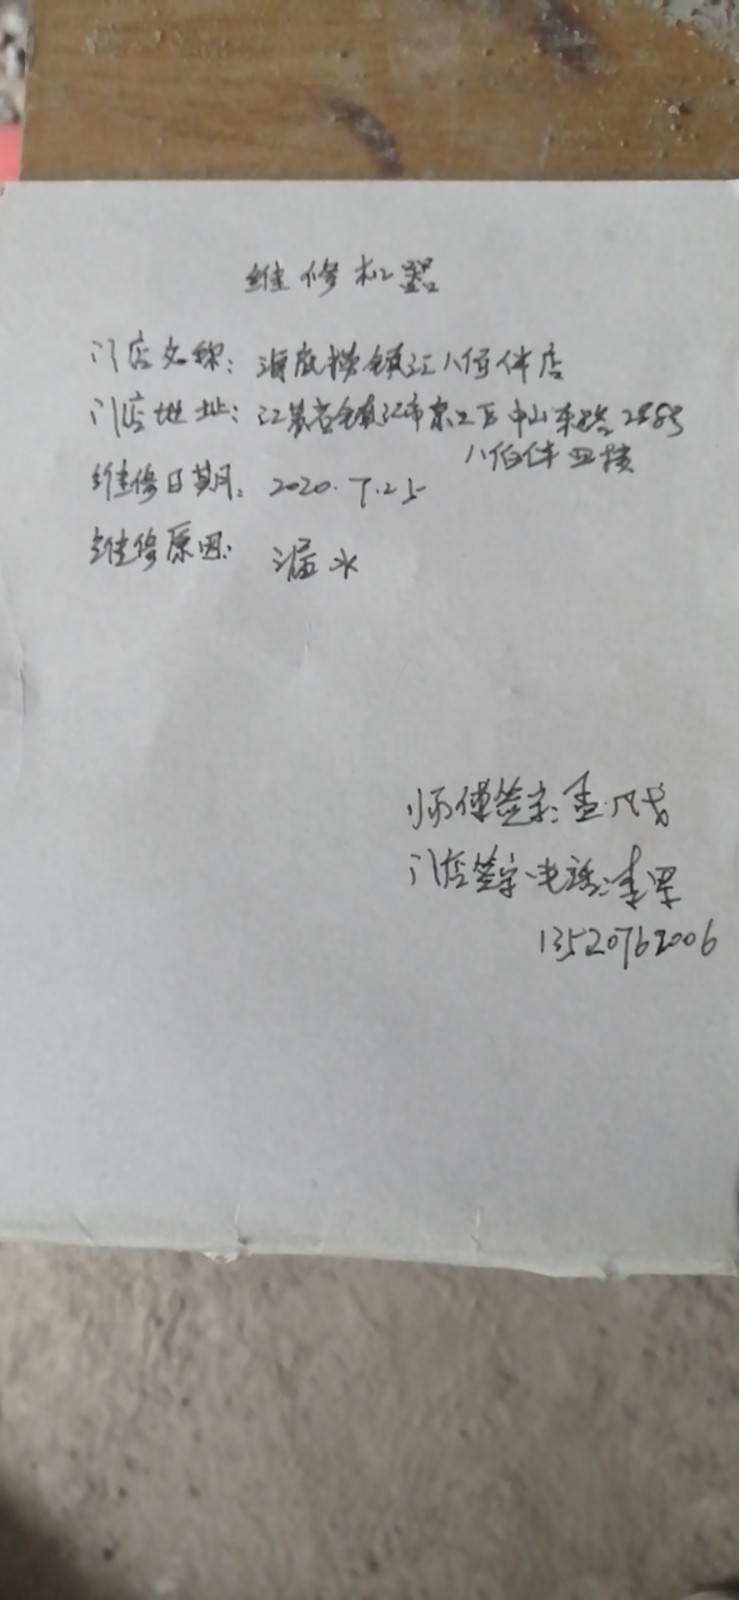 维修机器
门店名称：海底捞镇江八佰伴店
门店地址：江苏省镇江市京口区中山东路288号
八佰伴四楼
维修日期：2020.7.25
维修原因：漏水
师傅签字：孟
门店签字、电话：李
13520762006